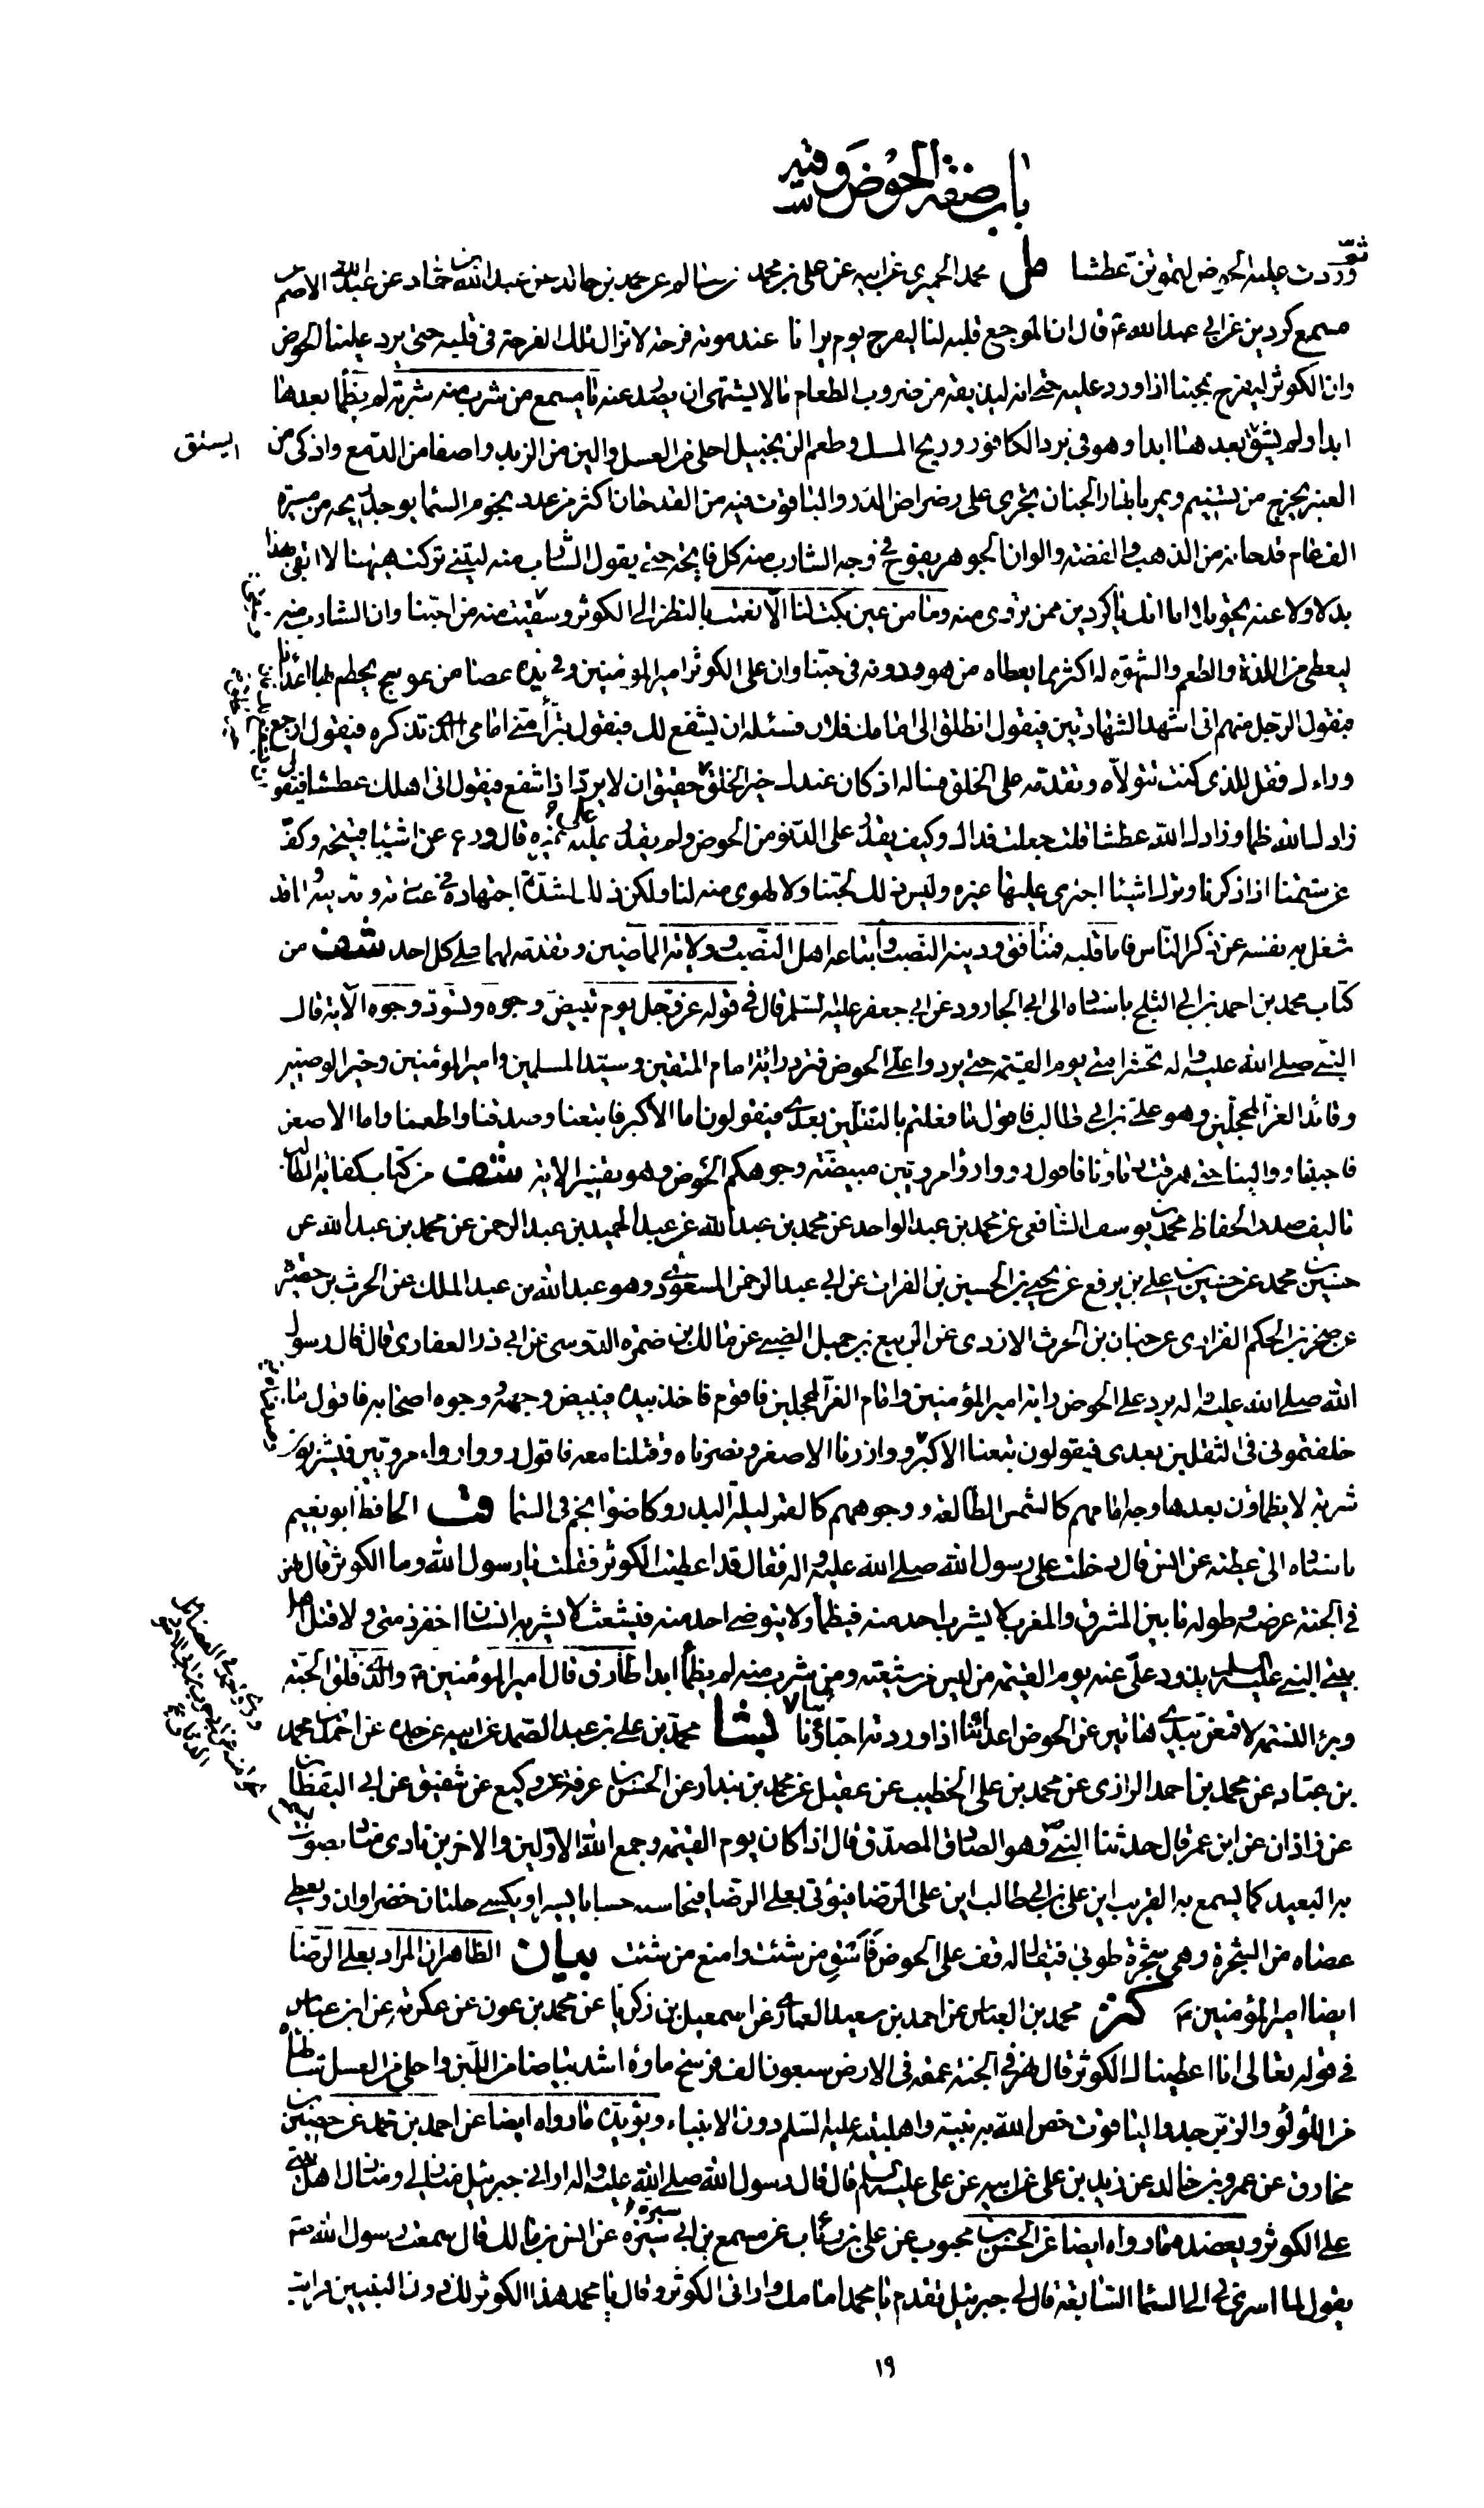 باب صفة الحوض وفيه
وردت عليه الحوض ليموتن عطشا مل محمد الحميرى عن ابيه عن على بن محمد بن سالم عن محمد بن خالد عن عبد الله بن حماد عن عبد الله الاصم
مسمع كردين عن ابى عبد الله قال ان الموجع قلبه لنا ليفرح يوم يرانا عند موته فرحة لا تزال تلك الفرحة فى قلبه حتى يرد علينا الحوض
وان الكوثر ليفرح بمحبنا اذا ورد عليه حتى انه ليذيقه من ضروب الطعام ما لا يشتهى ان يصدر عنه يا مسمع من شرب منه شربة لم يظمأ بعدها
ابدا ولم يشق بعدها ابدا وهو فى برد الكافور وريح المسك وطعم الزنجبيل احلى من العسل والين من الزبد واصفا من الدمع واذكى من
العنبر يخرج من تسنيم ويمر بانهار الجنان يجرى على رضراض الدر والياقوت فيه من القدحان اكثر من عدد نجوم السما يوجد ريحه من مسيرة
الف عام قدحانه من الذهب والفضة والوان الجوهر يفوح فى وجه الشارب منه كل فايحة حتى يقول الشارب منه ليتنى تركت ههنا لا ابغى بهذا
بدلا ولا عنه تحويلا اما انك يا كردين ممن تروى منه وما من عين بكت لنا الا نعمت بالنظر الى الكوثر وسقيت منه من احبنا وان الشارب منه
ليعطى من اللذة والطعم والشهوة له اكثر مما يعطاه من هو دونه فى حبنا وان على الكوثر امير المؤمنين وفى يده عصا من عوسج يحطم بها اعدائنا
فيقول الرجل منهم انى اشهد الشهادتين فيقول انطلق الى امامك فلان فسئله ان يشفع لك فيقول تبرأ منى امامى الذى تذكره فيقول ارجع
وراءك فقل للذى كنت تتولاه وتقدمه على الخلق فساله اذ كان عندك خير الخلق حقيق ان لا يرد اذا شفع فيقول انى اهلك عطشا فيقول
زادك الله ظما وزادك الله عطشا قلت جعلت فداك وكيف يقدر على الدنو من الحوض ولم يقدر عليه غيره قال ورع عن اشيا قبيحة وكف
عن شتمنا اذا ذكرنا وترك اشيئا اجترى عليها غيره وليس ذلك لحبنا ولا لهوى منه لنا ولكن ذلك لشدة اجتهاده فى عبادته وتدينه ولما قد
شغل به نفسه عن ذكر الناس فاما قلبه فمنافق ودينه النصب واتباعه اهل النصب وولاية الماضين وتقدمه لهما على كل احد شف من
كتاب محمد بن احمد بن ابى الثلج باسناده الى ابى الجارود عن ابى جعفر عليه السلم قال فى قوله عز وجل يوم تبيض وجوه وتسود وجوه الآية قال
النبى صلى الله عليه واله تحشر امتى يوم القيمة حتى يردوا على الحوض فترد راية امام المتقين وسيد المسلمين وامير المؤمنين وخير الوصيين
وقائد الغر المحجلين وهو على بن ابى طالب فاقول ما فعلتم بالثقلين بعدى فيقولون اما الاكبر فاتبعنا وصدقنا واطعنا واما الاصغر
فاحببنا ووالينا حتى هرقت دماؤنا فاقول رووا رواء مرويين مبيضة وجوهكم الحوض وهو تفسير الاية شف من كتاب كفاية الطالب
تاليف صدر الحفاظ محمد بن يوسف الشافعى عن محمد بن عبد الواحد عن محمد بن عبد الله عن عبد الحميد بن عبد الرحمن عن محمد بن عبد الله عن
حسين بن محمد عن حسين بن على بن بزيع عن يحيى بن الحسين بن الفرات عن ابى عبد الرحمن المسعودى وهو عبد الله بن عبد الملك عن الحرث بن حضيرة
عن صخر بن الحكم الفزارى عن حنان بن الحرث الازدى عن الربيع بن جميل الضبى عن مالك بن ضمرة الدوسى عن ابى ذر الغفارى قال قال رسول
الله صلى الله عليه واله يرد على الحوض راية امير المؤمنين وامام الغر المحجلين فاقوم فاخذ بيده فيبيض وجهه ووجوه اصحابه فاقول ما
خلفتمونى فى الثقلين بعدى فيقولون تبعنا الاكبر ووازرنا الاصغر ونصرناه وقتلنا معه فاقول رووا رواء مرويين فيشربون
شربة لا يظماؤن بعدها وجه امامهم كالشمس الطالعة ووجوههم كالقمر ليلة البدر وكاضوا نجم فى السما قب الحافظ ابو نعيم
باسناده الى عطية عن انس قال دخلت على رسول الله صلى الله عليه واله فقال قد اعطيت الكوثر فقلت يا رسول الله وما الكوثر قال نهر
فى الجنة عرضه وطوله ما بين المشرق والمغرب لا يشرب احد منه فيظمأ ولا يتوضى احد منه فيشعث لا يشربه انسان اخفر ذمتى ولا قتل اهل
بيتى النبى عليه السلم يذود على عنه يوم القيمة من ليس من شيعته ومن شرب منه لم يظمأ ابدا طارق قال امير المؤمنين والذى فلق الحبة
وبرء النسمة لاقمعن بيدى هاتين عن الحوض اعدائنا اذا وردته احباؤنا بشا محمد بن على بن عبد الصمد عن ابيه عن جده عن احمد بن محمد
بن عباد عن محمد بن احمد الرازى عن محمد بن على الخطيب عن عقيل عن محمد بن بندار عن الحسن بن عرفة عن وكيع عن شقيق عن ابى اليقظان
عن زاذان عن ابن عمر قال حدثنا النبى وهو الصادق المصدق قال اذا كان يوم القيمة وجمع الله الاولين والاخرين نادى مناد بصوت
به البعيد كما يسمع به القريب اين على بن ابى طالب اين على الرضا فيؤتى بعلى الرضا فيحاسبه حسابا يسيرا ويكسى حلتان خضراوان ويعطى
عصاه من الشجرة وهى شجرة طوبى فيقال له قف على الحوض فاسق من شئت وامنع من شئت بيان الظاهر ان المراد بعلى الرضا
ايضا امير المؤمنين كنز محمد بن العباس عن احمد بن سعيد العمارى عن اسمعيل بن زكريا عن محمد بن عون عن عكرمة عن ابن عباس
فى قوله تعالى انا اعطيناك الكوثر قال نهر فى الجنة عمقه فى الارض سبعون الف فرسخ ماؤه اشد بياضا من اللبن واحلى من العسل شاطئاه
من اللؤلؤ والزبرجد والياقوت خص الله به نبيه واهل بيته عليه السلم دون الانبياء ويؤيده ما رواه ايضا عن احمد بن محمد عن حصين بن
مخارق عن عمرو بن خالد عن زيد بن على عن ابيه عن على عليه السلم قال قال رسول الله صلى الله عليه واله ارانى جبرئيل منازلى ومنازل اهل بيتى
على الكوثر ويعضده ما رواه ايضا عن الحسن بن محبوب عن على بن رئاب عن مسمع بن ابى سبرة عن انس بن مالك قال سمعت رسول الله
يقول لما اسرى بى الى السما السابعة قال لى جبرئيل تقدم يا محمد امامك وارانى الكوثر وقال يا محمد هذا الكوثر لك دون النبيين فرايت
١٩